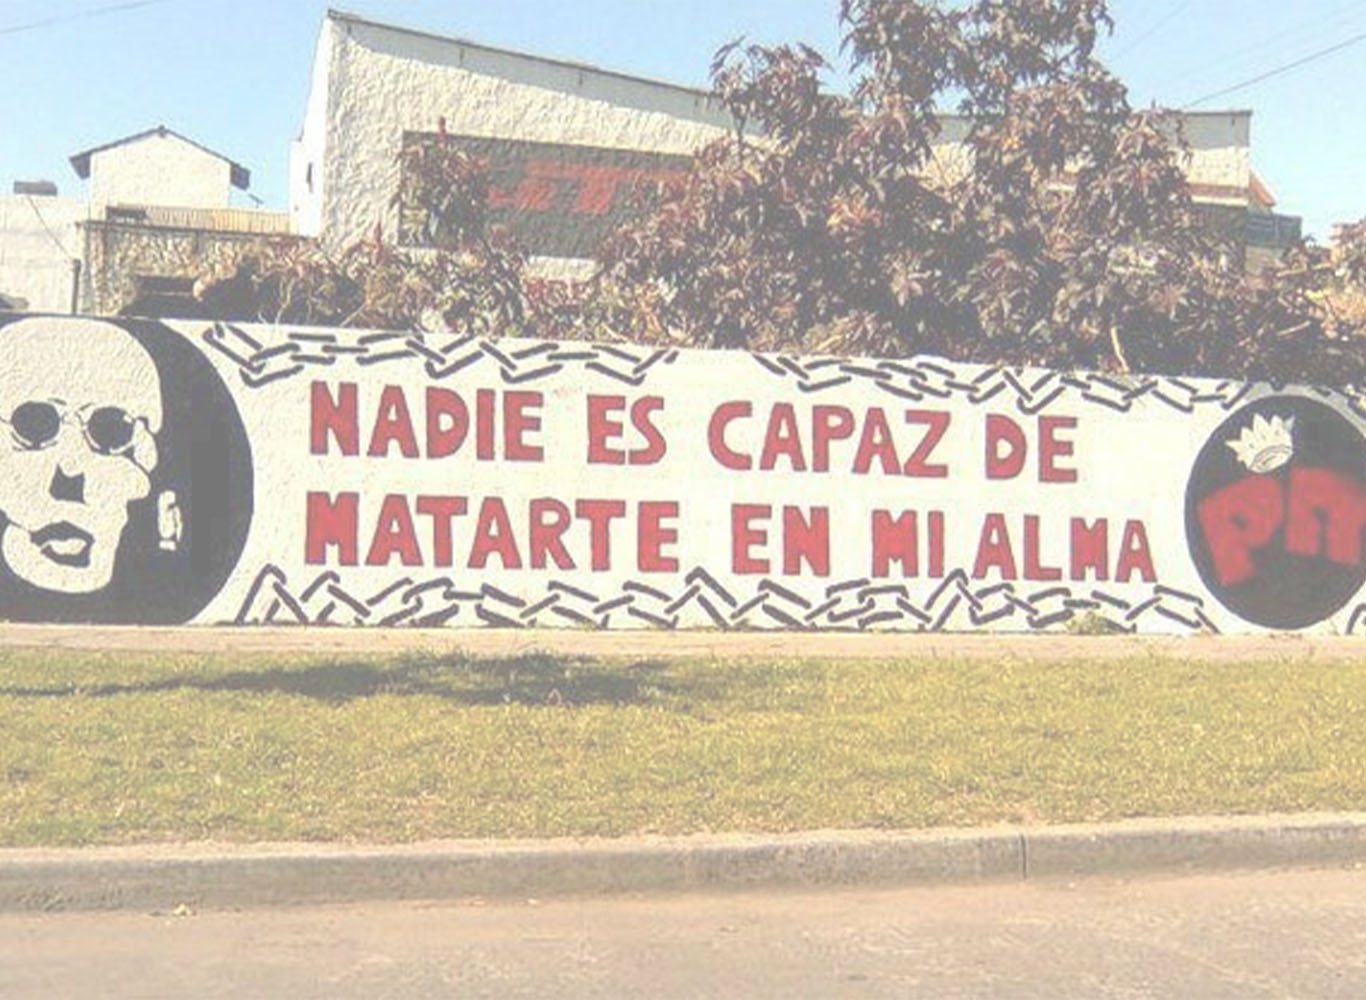 NADIE ES CAPAZ DE
MATARTE EN MI ALMA